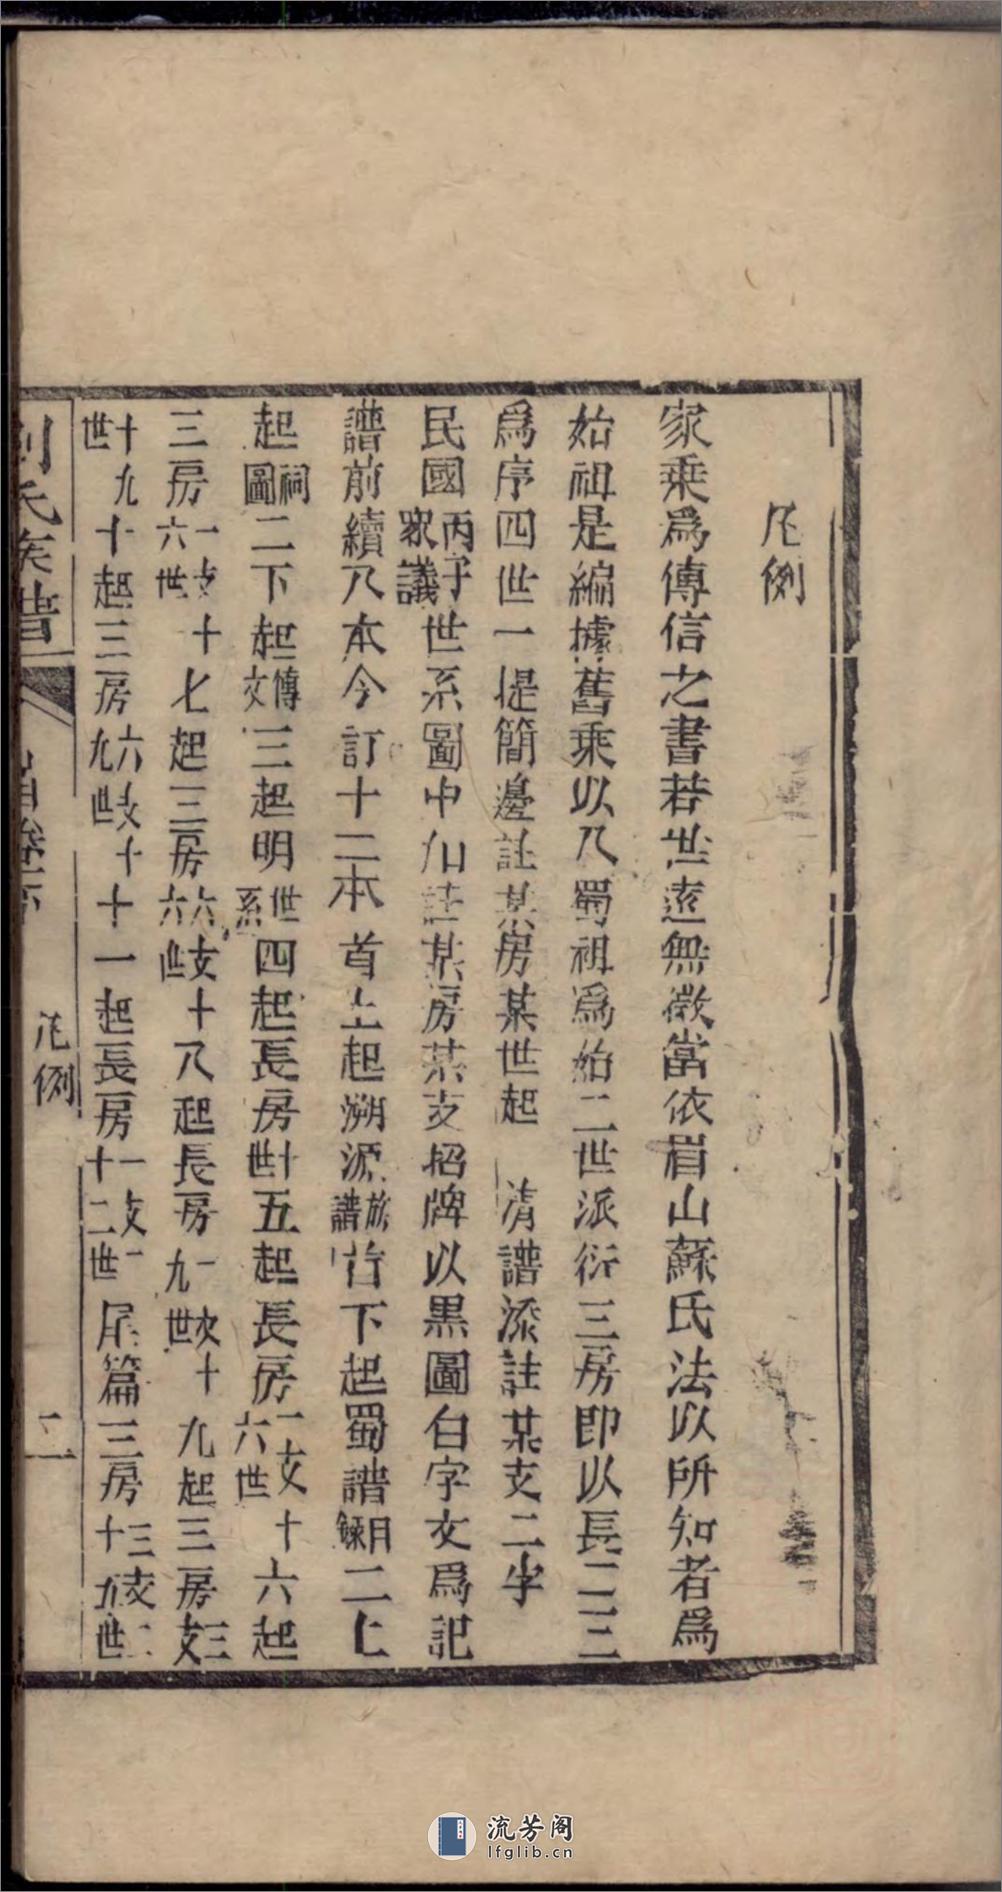 凡例
家乘爲傳信之書若世遠無徵當依眉山蘇氏法以所知者爲
始祖是編據舊乘以入蜀祖爲始二世派衍三房即以長二三
爲序四世一提簡邊註某房某世起 清譜添註某支二字
民國丙子眾議世系圖中加註某房某支招牌以黑圖白字文爲記
譜前續八本今訂十二本首上起溯源族譜首下起蜀譜目錄二上
起祠圖二下起傳文三起明世系四起長房十世五起長房二支六世十六起
三房一支六世十七起三房六支六世十八起長房一次九世十九起三房三支
十九世十起三房六支十九世十一起長房一支一十二世尾篇三房三支二十五世
劉氏族譜
凡例
二
流芳阁
lfglib.cn